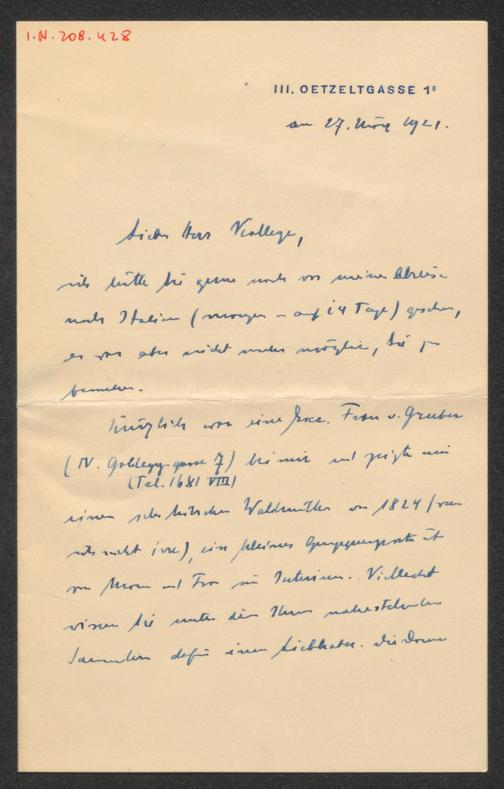 I.N. 208.428
III. OETZELTGASSE 1ᴮ
am 27. März 1921.
Lieber Herr Kollege,
ich hätte Sie gerne noch vor meiner Abreise
nach Italien (morgen – auf 14 Tage) gesehen,
es war aber nicht mehr möglich, Sie zu
Kürzlich war eine Exc. Frau v. Gruber
(IV. Goldegggasse 7) bei mir und zeigte mir
(Tel. 1681 VIII)
einen sehr hübschen Waldmüller von 1824 (wenn
ich nicht irre), ein kleines Gruppenporträt
von Mann und Frau im Interieur. Vielleicht
wissen Sie unter den Ihnen nahestehenden
Sammlern dafür einen Liebhaber. Die Dame